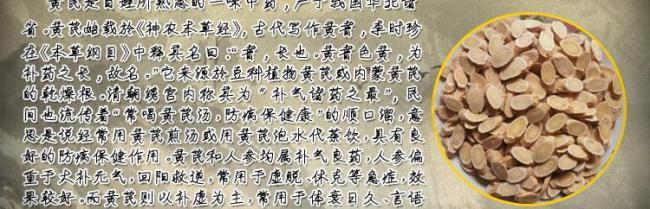 黄芪是百姓所熟悉的一味中药，产于我国华北诸
省。黄芪始载於《神农本草经》，古代写作黄耆，李时珍
在《本草纲目》中释其名曰："耆，长也。黄耆色黄，为
补药之长，故名。"它来源於豆种植物黄芪或内蒙黄芪
的乾燥根。清朝绣宫内称其为"补气诸药之最"，民
间也流传着"常喝黄芪汤，防病保健康"的顺口溜，意
思是说经常用黄芪煎汤或用黄芪泡水代茶饮，具有良
好的防病保健作用。黄芪和人参均属补气良药，人参偏
重于大补元气，回阳救逆，常用于虚脱、休克等急症，效
果较好。而黄芪则以补虚为主，常用于体衰日久、言语